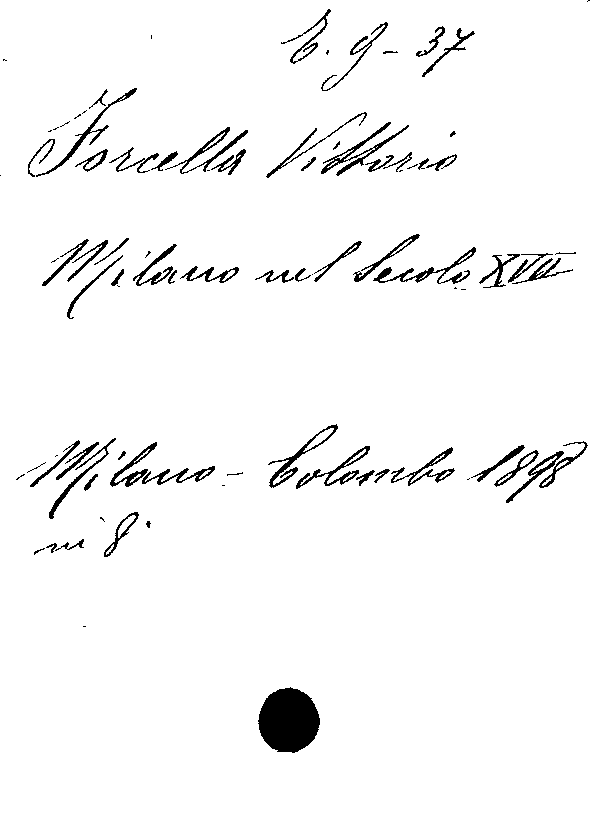 E. 9 - 37
Forcella Vittorio
Milano nel Secolo XVII
Milano - Colombo 1898
in 8°